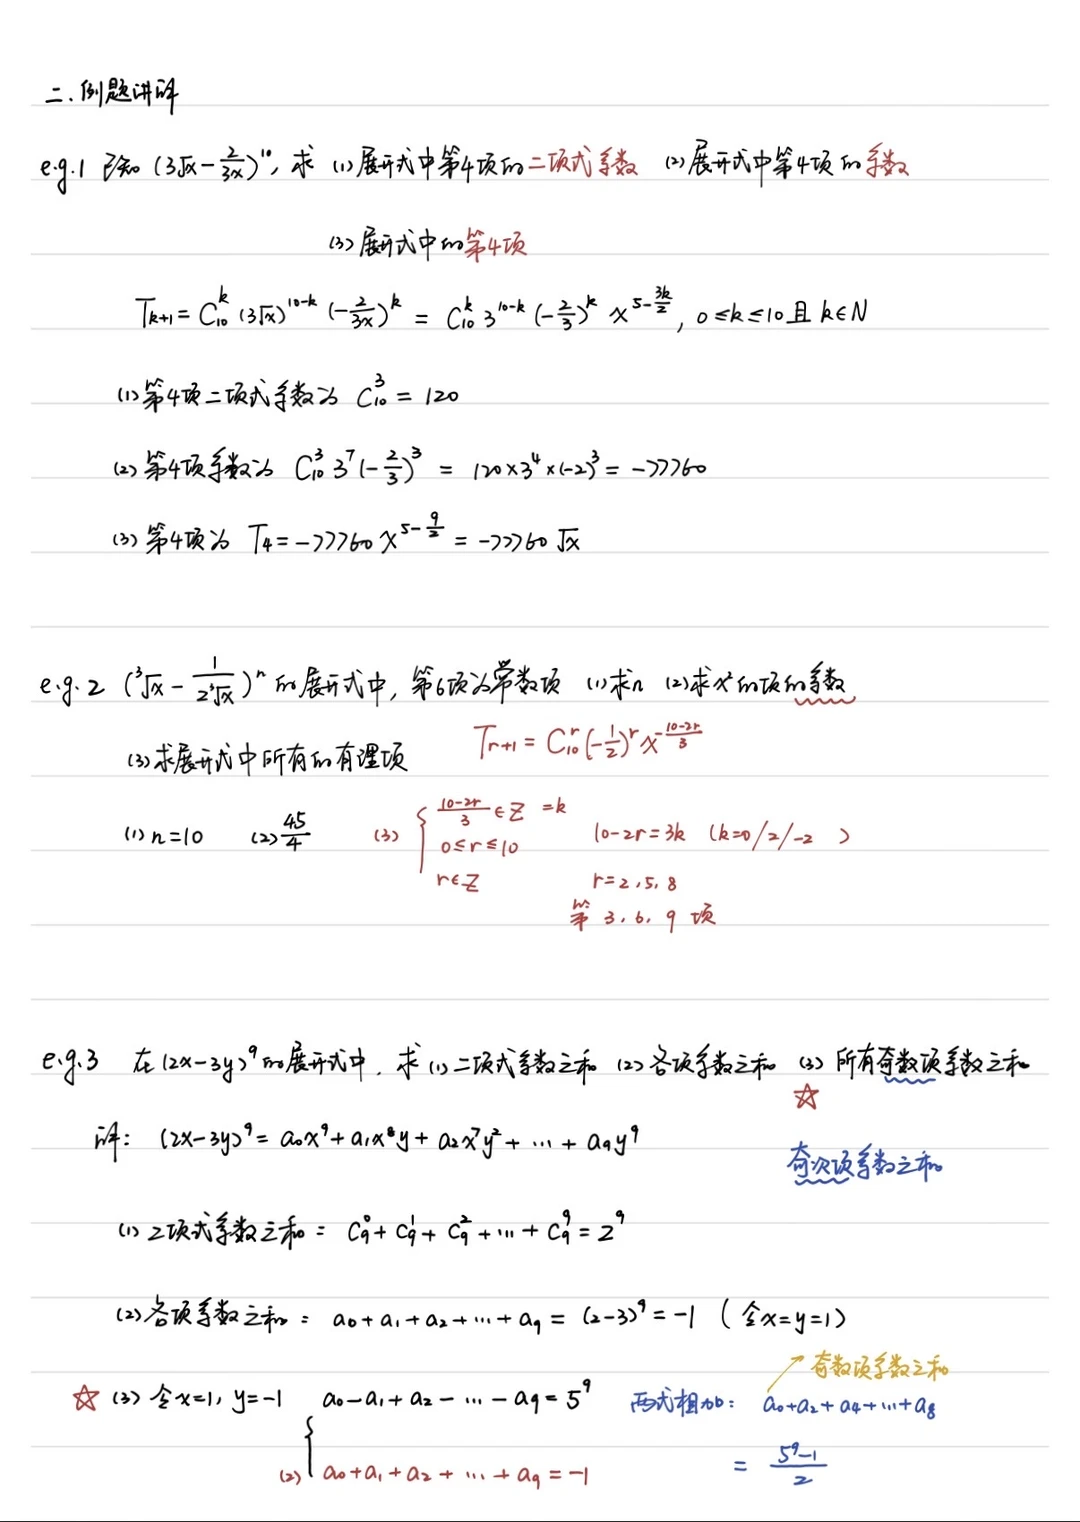 二、例题讲解
e.g.1 已知 (3√x - 2/(3x))^10, 求 (1)展开式中第4项的二项式系数 (2)展开式中第4项的系数
(3)展开式中的第4项
T_{k+1} = C_10^k (3√x)^{10-k} (-2/(3x))^k = C_10^k 3^{10-k} (-2/3)^k x^{5-3k/2}, 0≤k≤10且k∈N
(1)第4项二项式系数为 C_10^3 = 120
(2)第4项系数为 C_10^3 3^7 (-2/3)^3 = 120×3^4×(-2)^3 = -77760
(3)第4项为 T_4 = -77760 x^{5-9/2} = -77760 √x
e.g.2 (³√x - 1/(2³√x))^n 的展开式中, 第6项为常数项 (1)求n (2)求x²的项的系数
(3)求展开式中所有的有理项 T_{r+1} = C_10^r (-1/2)^r x^{-(10-2r)/3}
(1) n=10 (2) 45/4 (3) { (10-2r)/3 ∈ Z =k
0≤r≤10 10-2r=3k (k=0/2/-2 )
r∈Z r=2,5,8
第 3, 6, 9 项
e.g.3 在(2x-3y)^9的展开式中, 求(1)二项式系数之和 (2)各项系数之和 (3)所有奇数项系数之和
☆
解: (2x-3y)^9 = a_0x^9 + a_1x^8y + a_2x^7y^2 + … + a_9y^9
奇次项系数之和
(1) 2项式系数之和 = C_9^0 + C_9^1 + C_9^2 + … + C_9^9 = 2^9
(2)各项系数之和 = a_0 + a_1 + a_2 + … + a_9 = (2-3)^9 = -1 (令x=y=1)
↗ 奇数项系数之和
☆ (3) 令x=1, y=-1 a_0 - a_1 + a_2 - … - a_9 = 5^9 两式相加: a_0+a_2+a_4+…+a_8
(2) { a_0 + a_1 + a_2 + … + a_9 = -1 = (5^9-1)/2